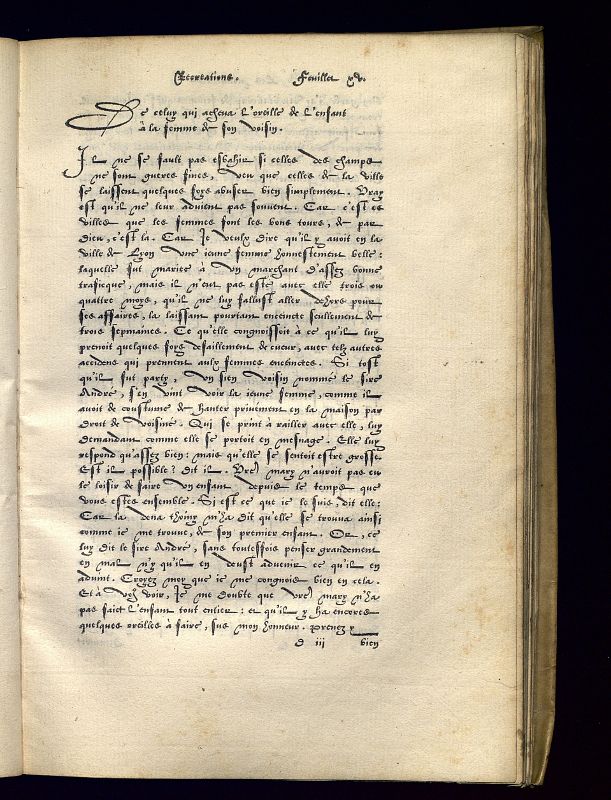 Recreations. Feuillet xv.
De celuy qui acheva l'oreille de l'enfant
à la femme de son voisin.
Il ne se fault pas esbahir si celles des champs
ne sont gueres fines, veu que celles de la ville
se laissent quelques foys abuser bien simplement. Vray
est qu'il ne leur advient pas souvent. Car c'est es
villes que les femmes font les bons tours, de par
Dieu, c'est la. Car Je veulx dire qu'il y avoit en la
ville de Lyon une ieune femme honnestement belle:
laquelle fut mariée à un marchant d'assez bonne
traficque, mais il n'eut pas esté avec elle trois ou
quattre moys, qu'il ne luy fallust aller dehors pour
ses affaires, la laissant pourtant enceincte seullement de
trois sepmaines. Ce qu'elle congnoissoit à ce qu'il luy
prenoit quelques foys defaillement de cueur, avec telz autres
accidens qui prennent aulx femmes enceinctes. Si tost
qu'il fut party, un sien voisin nommé le sire
André, s'en vint voir la ieune femme, comme il
avoit de coustume de hanter privément en la maison par
droit de voisiné. Qui se print à railler avec elle, luy
demandant comme elle se portoit en mesnage. Elle luy
respond qu'assez bien: mais qu'elle se sentoit estre grosse.
Est il possible? dit il. Vre mary n'auroit pas eu
le loisir de faire un enfant depuis le temps que
vous estes ensemble. Si est ce que ie le suis, dit elle:
Car la dena Thoiny m'ha dit qu'elle se trouva ainsi
comme ie me trouve, de son premier enfant. Or, ce
luy dit le sire André, sans toutesfois penser grandement
en mal n'y qu'il en deust advenir ce qu'il en
advint. Croyez moy que ie me congnois bien en cela.
Et à vous voir, Je me doubte que vre mary n'ha
pas faict l'enfant tout entier: et qu'il y ha encores
quelques oreilles à faire, sus mon honneur. Prenez y
d iii bien